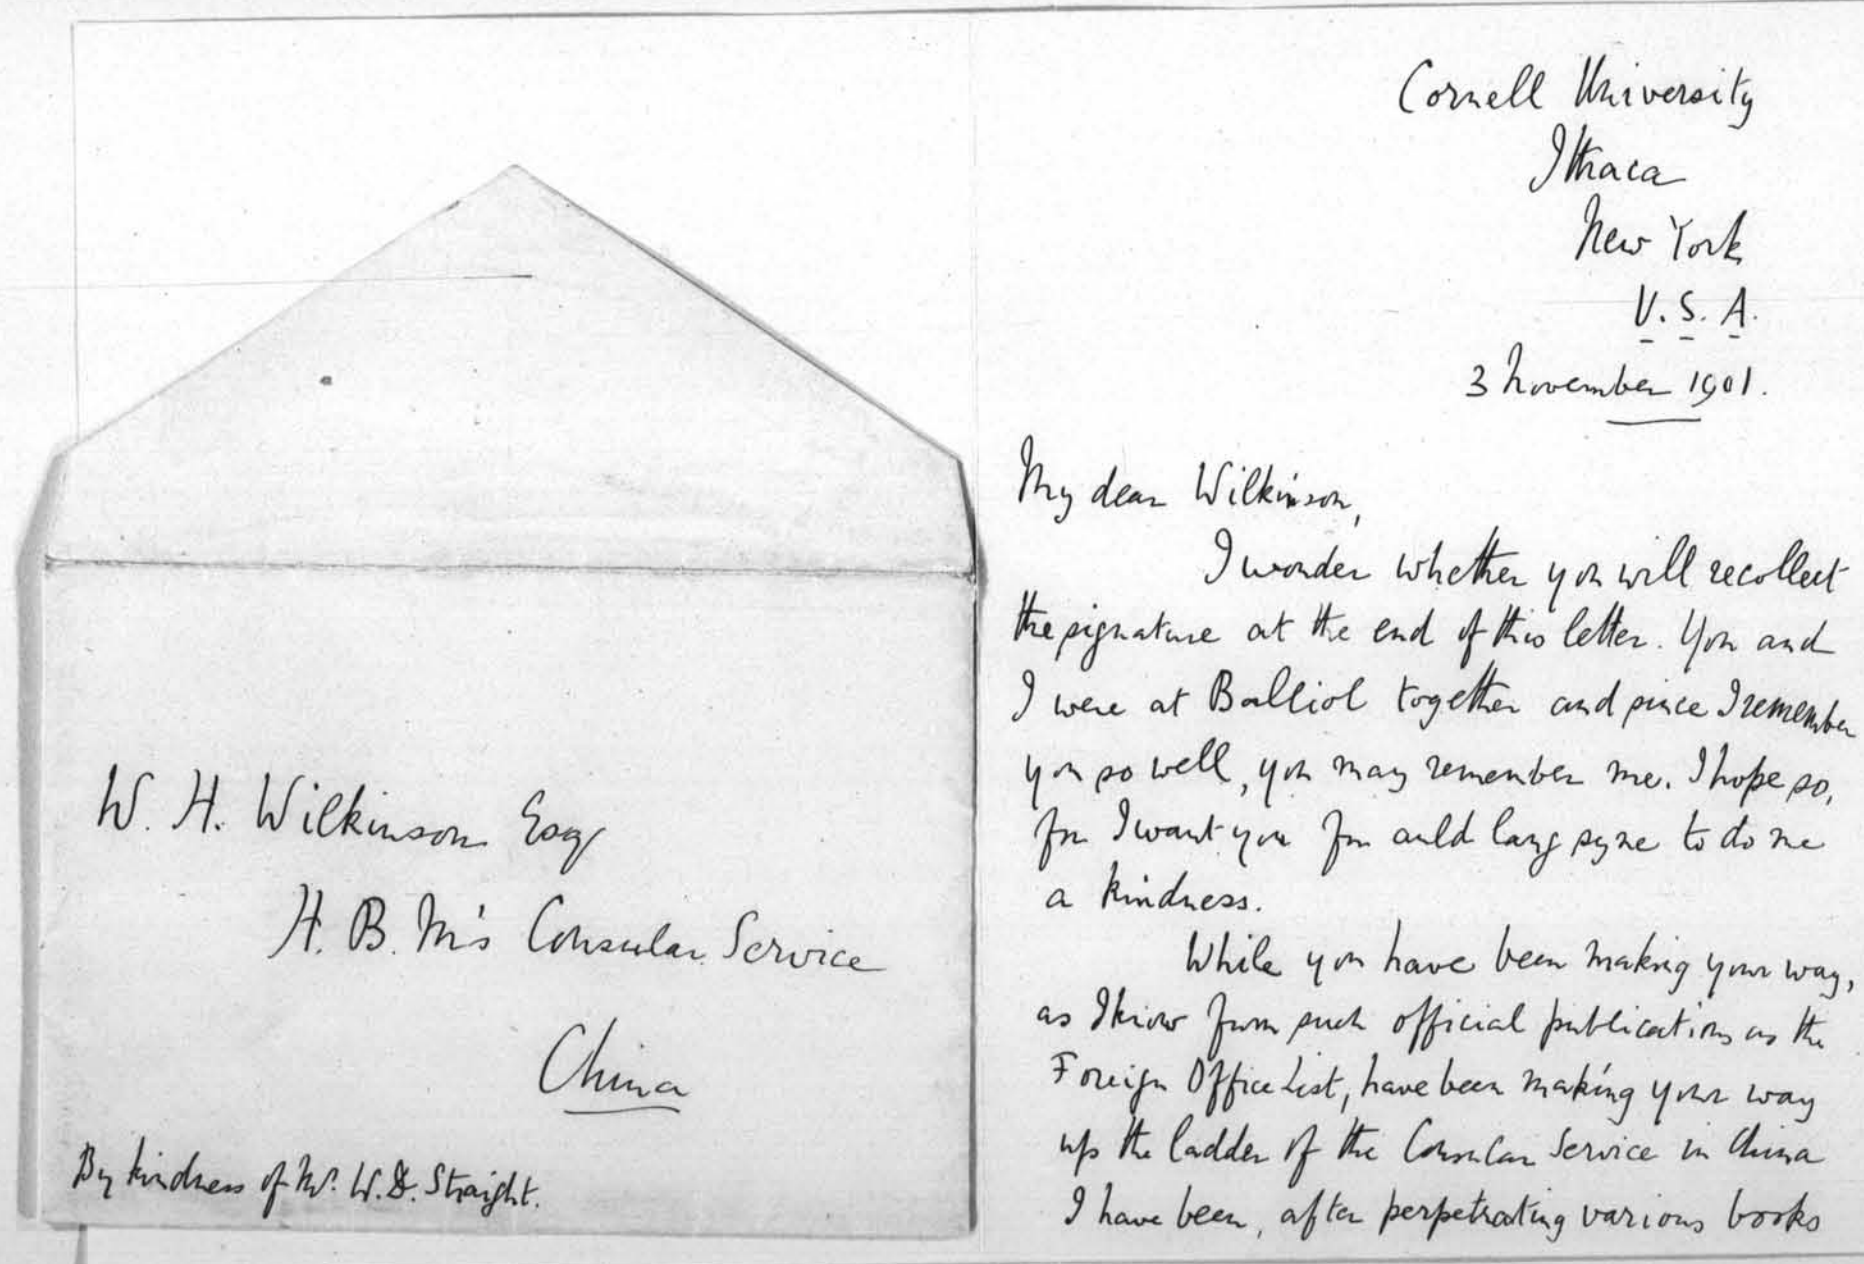 W. H. Wilkinson Esq
H. B. M's Consular Service
China
By kindness of Mr. W. D. Straight.
Cornell University
Ithaca
New York
U. S. A.
3 November 1901.
My dear Wilkinson,
I wonder whether you will recollect
the signature at the end of this letter. You and
I were at Balliol together and since I remember
you so well, you may remember me. I hope so,
for I want you for auld lang syne to do me
a kindness.
While you have been making your way,
as I know from such official publications as the
Foreign Office List, have been making your way
up the ladder of the Consular Service in China
I have been, after perpetrating various books